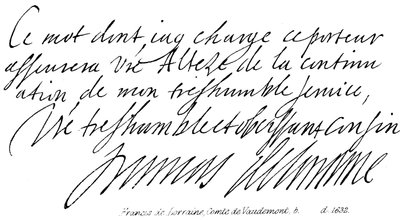 Ce mot dont iay charge ce porteur
asseurera Vre Alteze de la continu
ation de mon treshumble seruice,
Vre treshumble et obeissant cousin
francois de lorraine
Francis de Lorraine, Comte de Vaudemont. b. d. 1632.